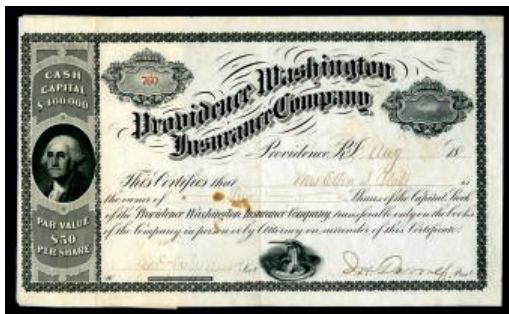 CASH
CAPITAL
$400,000
760
Providence Washington
Insurance Company
Providence, R.I. Aug 18
This Certifies that Mrs Ellen is
the owner of Shares of the Capital Stock
of the Providence Washington Insurance Company, transferable only on the books
of the Company in person or by Attorney on surrender of this Certificate.
PAR VALUE
$50
PER SHARE